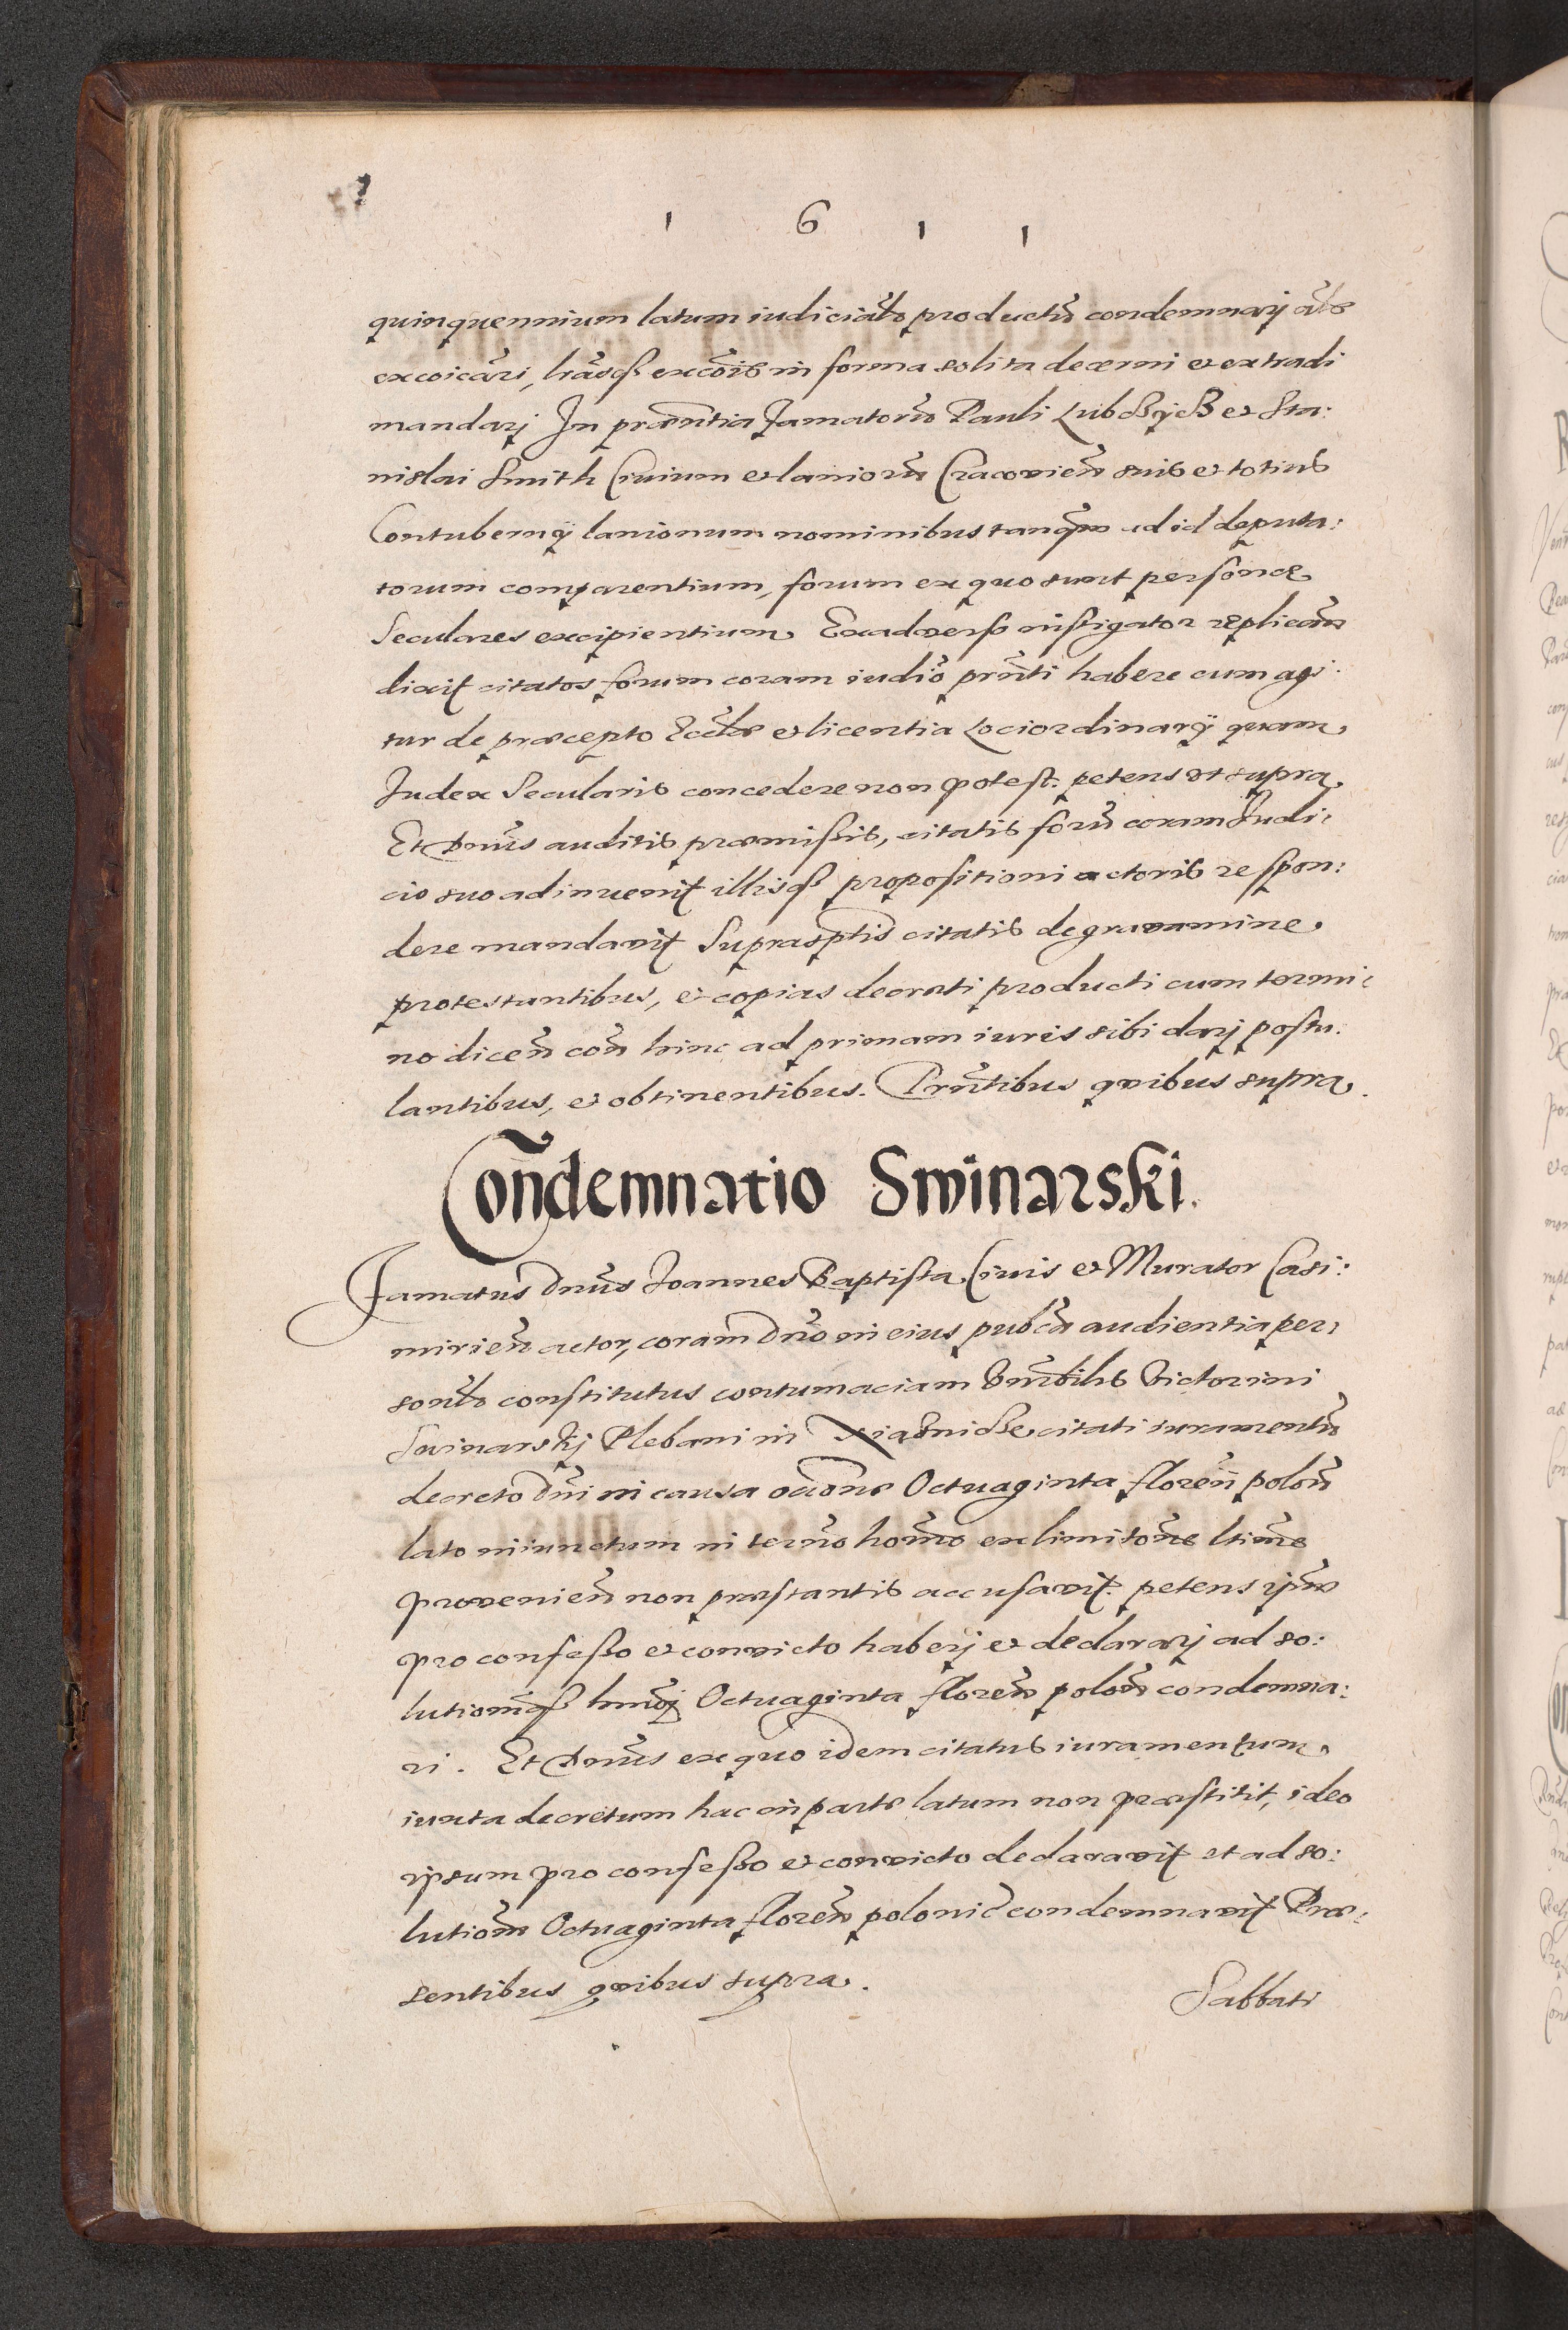 1 6 1 1
quinquennium latum iudicialr̃ productũ condemnarj
excõicãri, lrãsq3 excõis in forma solita decerni et extradi
mandarj In præntia Famatorũ Pauli et Sta:
nislai Smith Ciuium et laniorũ Cracouieñ suis et totius
Contubernÿ lanionum nominibus tanq̃m ad id deputa:
torum comparentium, forum ex quo sunt personæ
Seculares excipientium. Exaduerso instigator replicãn
dixit citatos forum coram iudiõ prñti habere cum agi:
tur de præcepto Eccłæ et licentia Loci ordinarÿ quam
Iudex Secularis concedere non potest. petens vt supra.
Et Dnũs auditis præmißis, citatis forũ coram Iudi:
cio suo adinuenit illisq3 propositioni actoris respon:
dere mandauit Suprasptis citatis de grauamine
protestantibus, et copias decreti producti cum termi:
no diceñ coñ hinc ad primam iuris sibi darj postu:
lantibus, et obtinentibus. Prñtibus quibus supra.
Condemnatio Swinarski.
Famatus Dnũs Ioannes Baptista Ciuis et Murator Casi:
mirieñ actor, coram Dnõ in eius publca audientia per:
sonlr̃ constitutus contumaciam Vnrãbilis Victorini
Swinarskj Plebani in citati iuramentũ
decreto Dñi in causa Octuaginta floreñ poloñ
lato iniunctum in termõ hoñro ex limitõne ltime
prouenieñ non præstantis accusauit. petens ipm̃
pro confeßo et conuicto haberj et declararj ad so:
lutionq3 hmõj Octuaginta floreñ poloñ condemna:
ri. Et Dnũs ex quo idem citatus iuramentum
iuxta decretum hac in parte latum non præstitit, ideo
ipsum pro confeßo et conuicto declarauit et ad so:
lutioñ Octuaginta floreñ polonic̃ condemnauit Præ:
sentibus quibus supra.
Sabbati